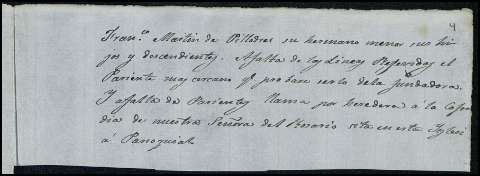 4
Fran.co Martin de Pilladres su hermano menor sus hi-
jos y descendientes. Afalta de los Lineas Referidas el
Pariente mas cercano q.e probare serlo dela fundadora.
Y afalta de Parientes llama por heredera á la Cofra-
dia de nuestra Señora del Rosario sita en esta Iglesi
á Parroquial.